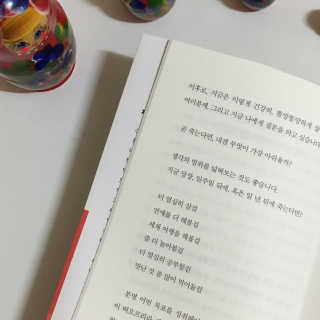 이후로, 지금은 이렇게 건강히, 평범하게 살
여러분께, 그리고 지금 나에게 질문을 하고 싶습니다
곧 죽는다면, 내겐 무엇이 가장 아쉬울까?
생각의 범위를 넓혀보는 것도 좋습니다.
지금 당장, 일주일 뒤에, 혹은 일 년 뒤에 죽는다면?
더 열심히 살걸
연애를 더 해볼걸
세계 여행을 해볼걸
좀 더 놀아볼걸
더 열심히 공부할걸
맛난 것 좀 많이 먹어둘걸
분명 어떤 목표를
이